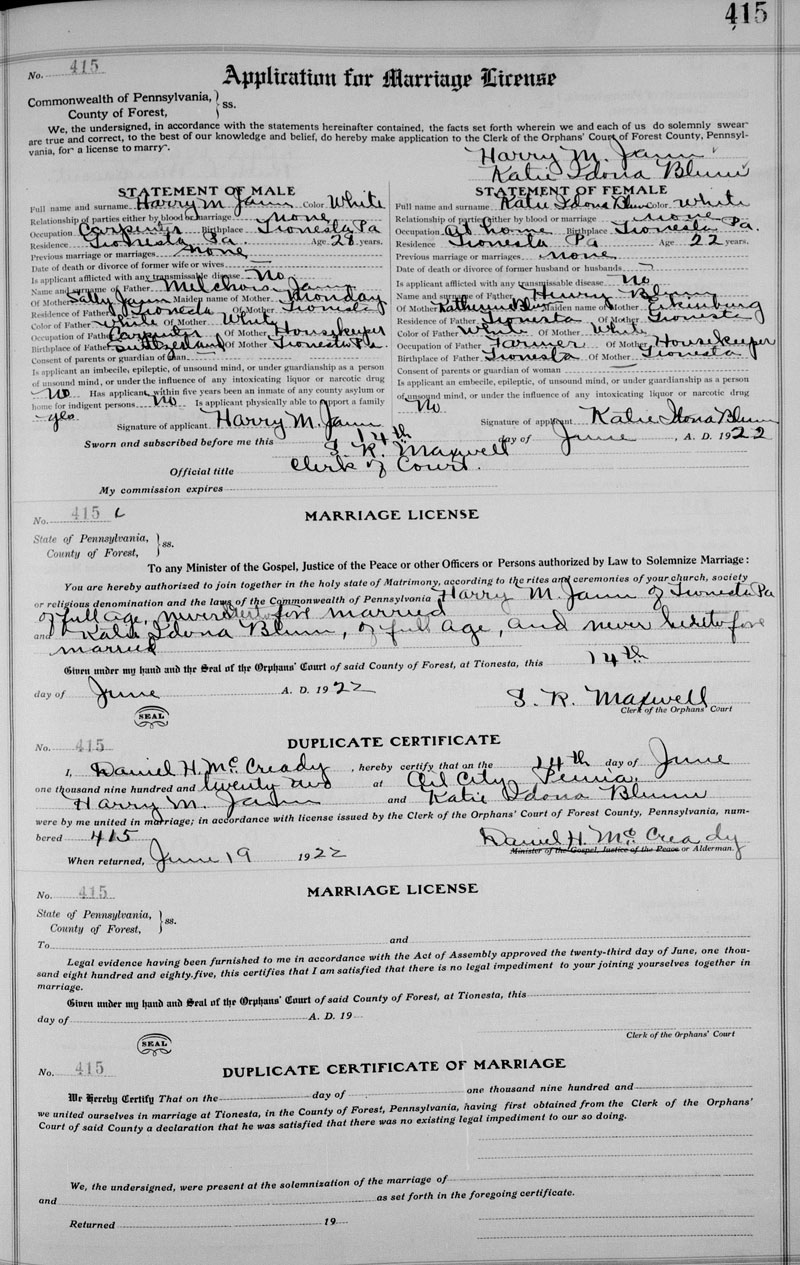 415
No. 415
Application for Marriage License
Commonwealth of Pennsylvania,
County of Forest, } ss.
We, the undersigned, in accordance with the statements hereinafter contained, the facts set forth wherein we and each of us do solemnly swear
are true and correct, to the best of our knowledge and belief, do hereby make application to the Clerk of the Orphans' Court of Forest County, Pennsyl-
vania, for a license to marry.
Harry M. Jann
Katie Idona Blum
STATEMENT OF MALE
Full name and surname Harry M Jann Color White
Relationship of parties either by blood or marriage none
Occupation Carpenter Birthplace Tionesta Pa
Residence Tionesta Pa Age 28 years.
Previous marriage or marriages none
Date of death or divorce of former wife or wives
Is applicant afflicted with any transmissable disease No
Name and surname of Father Melchor Jann
Of Mother Sally Jann Maiden name of Mother Monday
Residence of Father Tionesta Of Mother Tionesta
Color of Father White Of Mother White
Occupation of Father Carpenter Of Mother Housekeeper
Birthplace of Father Of Mother Tionesta Pa.
Consent of parents or guardian of man
Is applicant an imbecile, epileptic, of unsound mind, or under guardianship as a person
of unsound mind, or under the influence of any intoxicating liquor or narcotic drug
No Has applicant within five years been an inmate of any county asylum or
home for indigent persons No Is applicant physically able to support a family
yes
Signature of applicant Harry M. Jann
STATEMENT OF FEMALE
Full name and surname Katie Idona Blum Color White
Relationship of parties either by blood or marriage none
Occupation at home Birthplace Tionesta Pa.
Residence Tionesta Pa Age 22 years.
Previous marriage or marriages none
Date of death or divorce of former husband or husbands
Is applicant afflicted with any transmissable disease No
Name and surname of Father Henry Blum
Of Mother Maiden name of Mother
Residence of Father Tionesta Of Mother Tionesta
Color of Father White Of Mother White
Occupation of Father Farmer Of Mother Housekeeper
Birthplace of Father Tionesta Of Mother Tionesta
Consent of parents or guardian of woman
Is applicant an imbecile, epileptic, of unsound mind, or under guardianship as a person
of unsound mind, or under the influence of any intoxicating liquor or narcotic drug
No
Signature of applicant Katie Idona Blum
Sworn and subscribed before me this 14th day of June, A. D. 1922
S. R. Maxwell
Official title Clerk of Court.
My commission expires
No. 415
MARRIAGE LICENSE
State of Pennsylvania,
County of Forest, } ss.
To any Minister of the Gospel, Justice of the Peace or other Officers or Persons authorized by Law to Solemnize Marriage:
You are hereby authorized to join together in the holy state of Matrimony, according to the rites and ceremonies of your church, society
or religious denomination and the laws of the Commonwealth of Pennsylvania Harry M. Jann of Tionesta Pa
of full age, never heretofore married
and Katie Idona Blum, of full age, and never heretofore
married
Given under my hand and the Seal of the Orphans' Court of said County of Forest, at Tionesta, this 14th
day of June A. D. 1922
S. R. Maxwell
Clerk of the Orphans' Court
SEAL
No. 415
DUPLICATE CERTIFICATE
I, Daniel H. McCready, hereby certify that on the 14th day of June
one thousand nine hundred and twenty two at Oil City Penna.
Harry M. Jann and Katie Idona Blum
were by me united in marriage; in accordance with license issued by the Clerk of the Orphans' Court of Forest County, Pennsylvania, num-
bered 415
Daniel H. McCready
Minister of the Gospel, Justice of the Peace or Alderman.
When returned, June 19 1922
No. 415
MARRIAGE LICENSE
State of Pennsylvania,
County of Forest, } ss.
To and
Legal evidence having been furnished to me in accordance with the Act of Assembly approved the twenty-third day of June, one thou-
sand eight hundred and eighty-five, this certifies that I am satisfied that there is no legal impediment to your joining yourselves together in
marriage.
Given under my hand and Seal of the Orphans' Court of said County of Forest, at Tionesta, this
day of A. D. 19
Clerk of the Orphans' Court
SEAL
No. 415
DUPLICATE CERTIFICATE OF MARRIAGE
We Hereby Certify That on the day of one thousand nine hundred and
we united ourselves in marriage at Tionesta, in the County of Forest, Pennsylvania, having first obtained from the Clerk of the Orphans'
Court of said County a declaration that he was satisfied that there was no existing legal impediment to our so doing.
We, the undersigned, were present at the solemnization of the marriage of
and as set forth in the foregoing certificate.
Returned 19